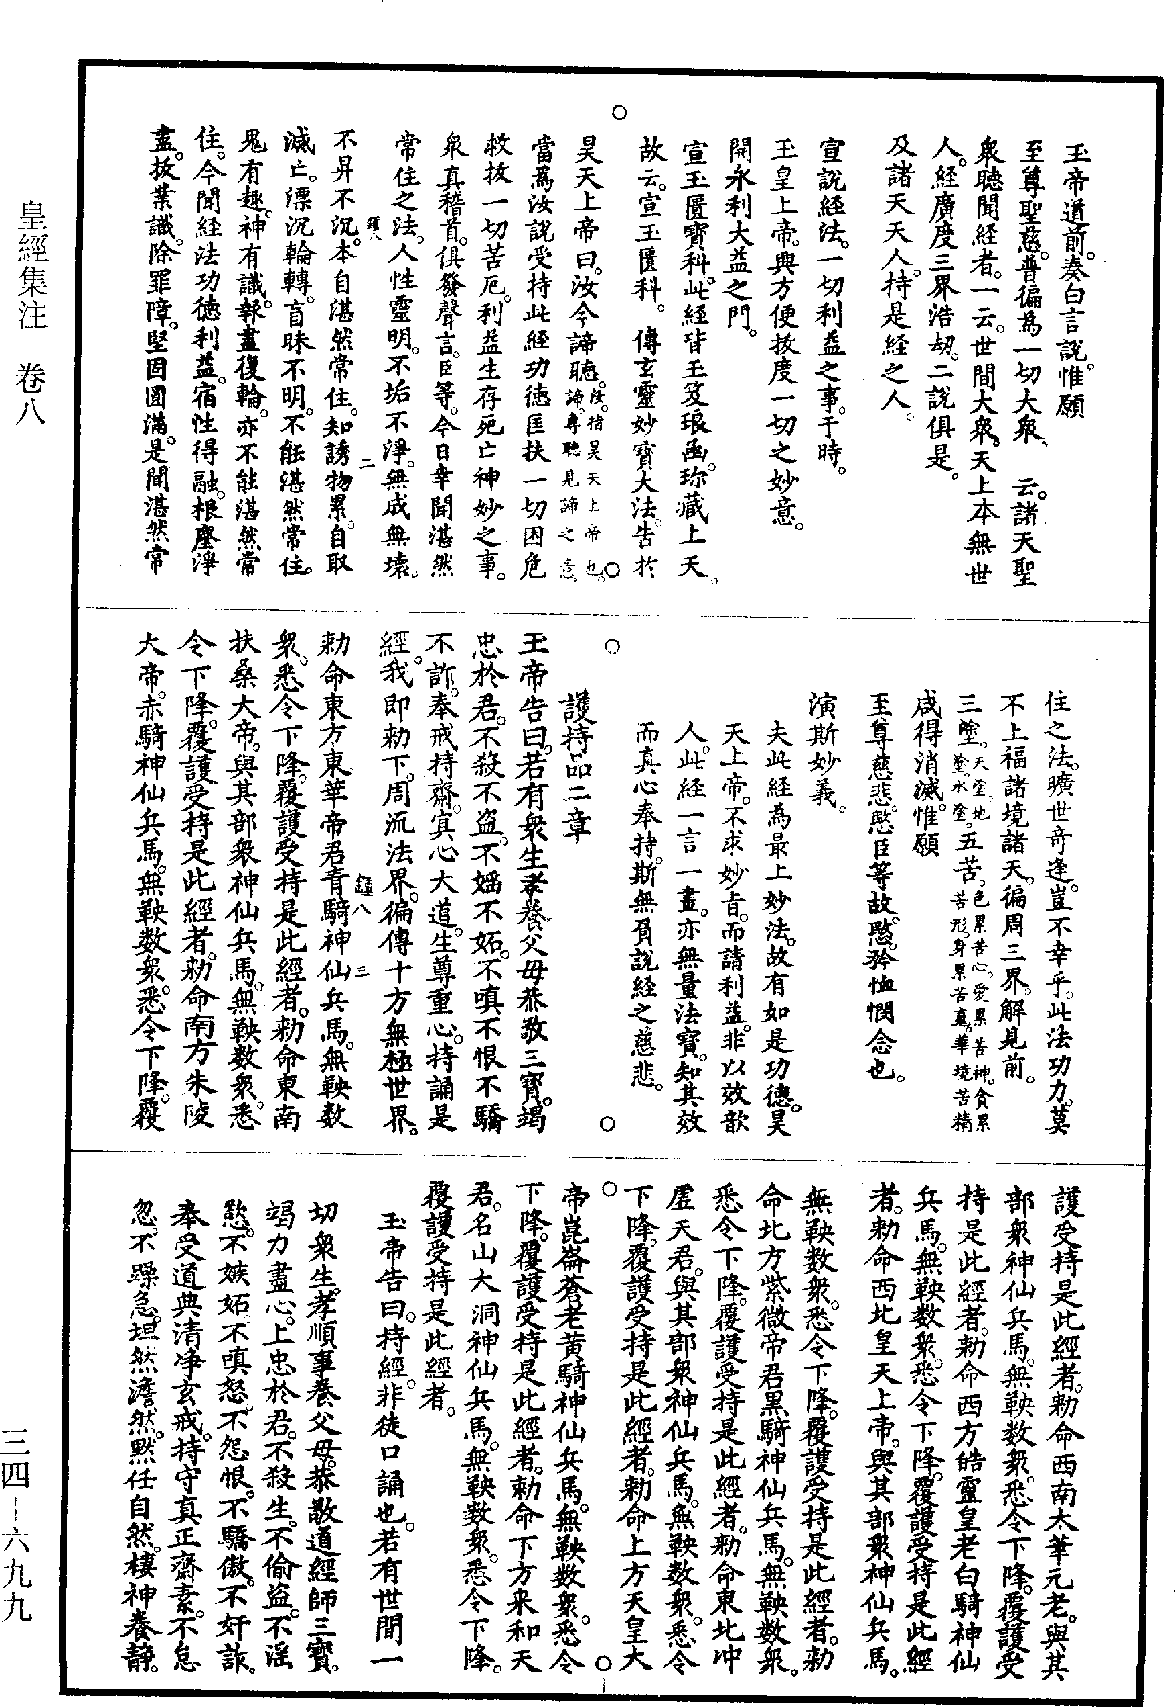 皇經集注　卷八
三四—六九九
玉帝道前。奏白言說。惟願
至尊聖慈。普徧為一切大衆、　云。諸天聖
衆聽聞經者。一云。世間大衆。天上本無世
人。經廣度三界浩劫。二說俱是。
及諸天天人。持是經之人。
宣說經法。一切利益之事。于時。
玉皇上帝。興方便拔度一切之妙意。
開永利大益之門。
宣玉匱寶科。此經皆玉笈琅函。珍藏上天。
故云。宣玉匱科。傳玄靈妙寶大法。告於
昊天上帝曰。汝今諦聽。汝。指昊天上帝也。諦。專聽見諦之意。
當為汝說受持此經功德。匡扶一切困危
救拔一切苦厄。利益生存死亡神妙之事。
衆真稽首。俱發聲言。臣等。今日幸聞湛然
常住之法。人性靈明。不垢不淨。無成無壞。
不昇不沉。本自湛然常住。知誘物累。自取
滅亡。漂沉輪轉。盲昧不明。不能湛然常住。
鬼有趣。神有識。報盡復輪。亦不能湛然常
住。今聞經法功德利益。宿性得融。根塵淨
盡。拔業識。除罪障。堅固圓滿。是聞湛然常
住之法。曠世奇逢。豈不幸乎。此法功力。莫
不上福諸境諸天。徧周三界。解見前。
三塗。天塗。地塗。水塗。五苦。色累苦心。愛累苦神。貪累苦形。身累苦。華境苦精
咸得消滅。惟願
至尊慈悲。愍臣等故。愍。矜恤憫念也。
演斯妙義。
夫此經為最上妙法。故有如是功德。昊
天上帝。不求妙旨。而請利益。非以效歆
人。此經一言一畫。亦無量法寶。知其效
而真心奉持。斯無負說經之慈悲。
護持品二章
玉帝告曰。若有衆生孝養父母。恭敬三寶。竭
忠於君。不殺不盜。不婬不妬。不嗔不恨。不驕
不詐。奉戒持齋。宾心大道。生尊重心。持誦是
經。我即勅下。周流法界。徧傳十方無極世界。
勅命東方東華帝君。青騎神仙兵馬。無鞅數
衆。悉令下降。覆護受持是此經者。勅命東南
扶桑大帝。與其部衆神仙兵馬。無鞅數衆。悉
令下降。覆護受持是此經者。勅命南方朱陵
大帝。赤騎神仙兵馬。無鞅數衆。悉令下降。覆
護受持是此經者。勅命西南太華元老。與其
部衆神仙兵馬。無鞅數衆。悉令下降。覆護受
持是此經者。勅命西方皓靈皇老。白騎神仙
兵馬。無鞅數衆。悉令下降。覆護受持是此經
者。勅命西北皇天上帝。與其部衆神仙兵馬。
無鞅數衆。悉令下降。覆護受持是此經者。勅
命北方紫微帝君。黑騎神仙兵馬。無鞅數衆。
悉令下降。覆護受持是此經者。勅命東北沖
虛天君。與其部衆神仙兵馬。無鞅數衆。悉令
下降。覆護受持是此經者。勅命上方天皇大
帝。崑崙蒼老。黃騎神仙兵馬。無鞅數衆。悉令
下降。覆護受持是此經者。勅命下方來和天
君。名山大洞神仙兵馬。無鞅數衆。悉令下降。
覆護受持是此經者。
玉帝告曰。持經。非徒口誦也。若有世間一
切衆生。孝順事養父母。恭敬道經師三寶。
竭力盡心。上忠於君。不殺生。不偷盜。不淫
慾。不嫉妬。不嗔怒。不怨恨。不驕傲。不奸詐。
奉受道典清淨玄戒。持守真正齋素。不怠
忽。不躁急。坦然澹然。默任自然。棲神養靜。